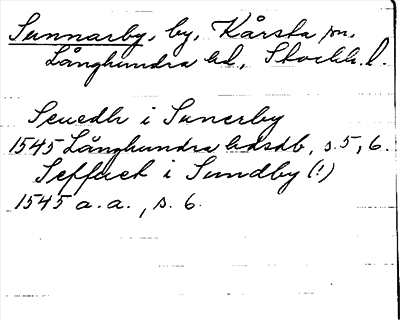 Sunnarby, by, Kårsta sn,
Långhundra hd, Stockh. l.
i Sunerby
1545 Långhundra hdsdb, s. 5, 6.
i Sundby (!)
1545 a. a., s. 6.